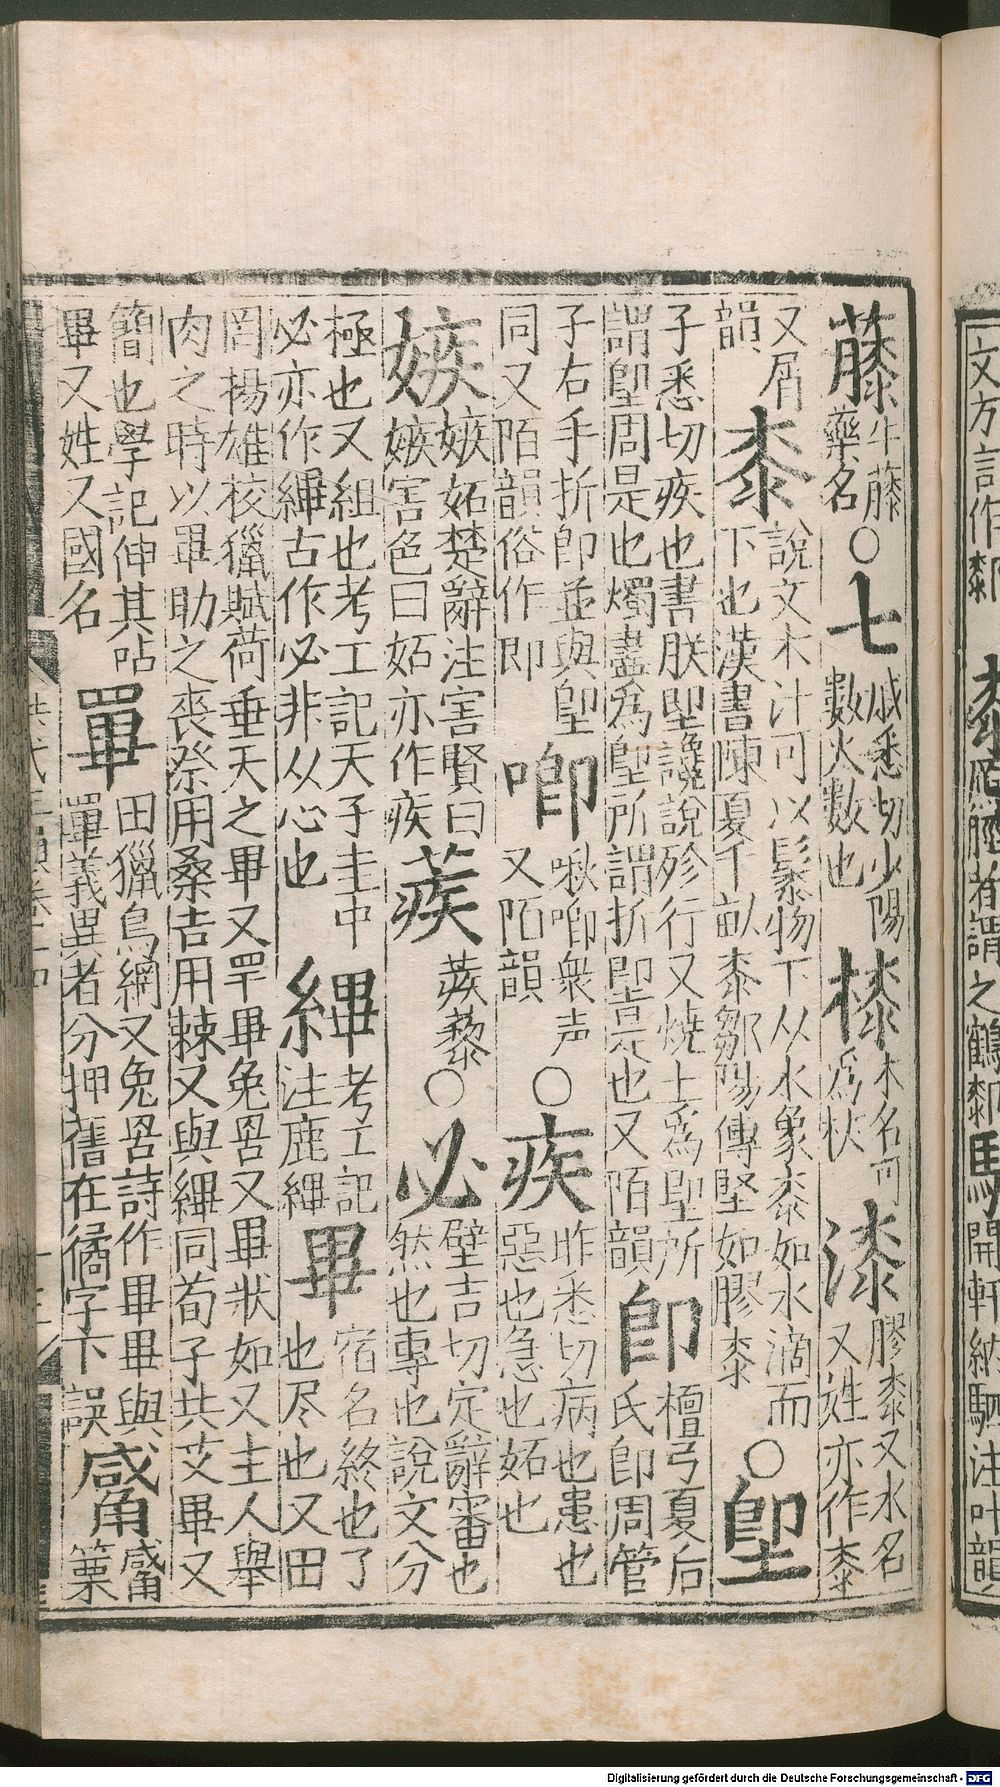 藤牛藤藥名○七戚悉切少陽數火數也榺木名可爲杖漆膠桼又水名又姓亦作桼
又屑韻桼說文木汁可以髹物下从水象桼如水滴而下也漢書陳夏千畝桼鄒陽傳堅如膠桼○堲
子悉切疾也書朕堲讒說殄行又燒土爲堲所謂堲周是也燭盡爲堲所謂折即是也又陌韻卽檀弓夏后氏卽周管
子右手折卽並與堲同又陌韻俗作即唧啾唧衆声又陌韻○疾昨悉切病也患也惡也急也妬也
嫉嫉妬楚辭注害賢曰嫉害色曰妬亦作疾蒺蒺藜○必壁吉切定辭審也然也專也說文分
極也又組也考工記天子圭中必亦作縪古作必非从心也縪考工記注鹿縪畢宿名終也了也尽也又田
罔揚雄校獵賦荷垂天之畢又罕畢兔罟又畢狀如叉主人舉肉之時以畢助之喪祭用桑吉用棘又與縪同荀子共艾畢又
簡也學記伸其呫畢又姓又國名罼田獵鳥網又兔罟詩作畢畢與罼義異者分押舊在僪字下誤觱觱篥
Digitalisierung gefördert durch die Deutsche Forschungsgemeinschaft - DFG